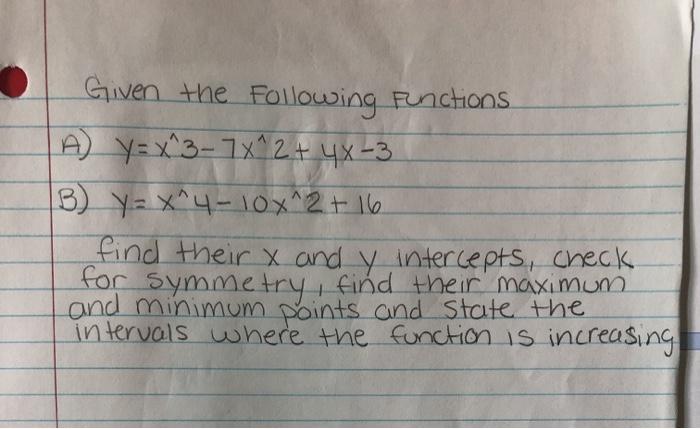 Given the Following Functions
A) y=x^3-7x^2+4x-3
B) y=x^4-10x^2+16
find their x and y intercepts, check
for symmetry, find their maximum
and minimum points and state the
intervals where the function is increasing